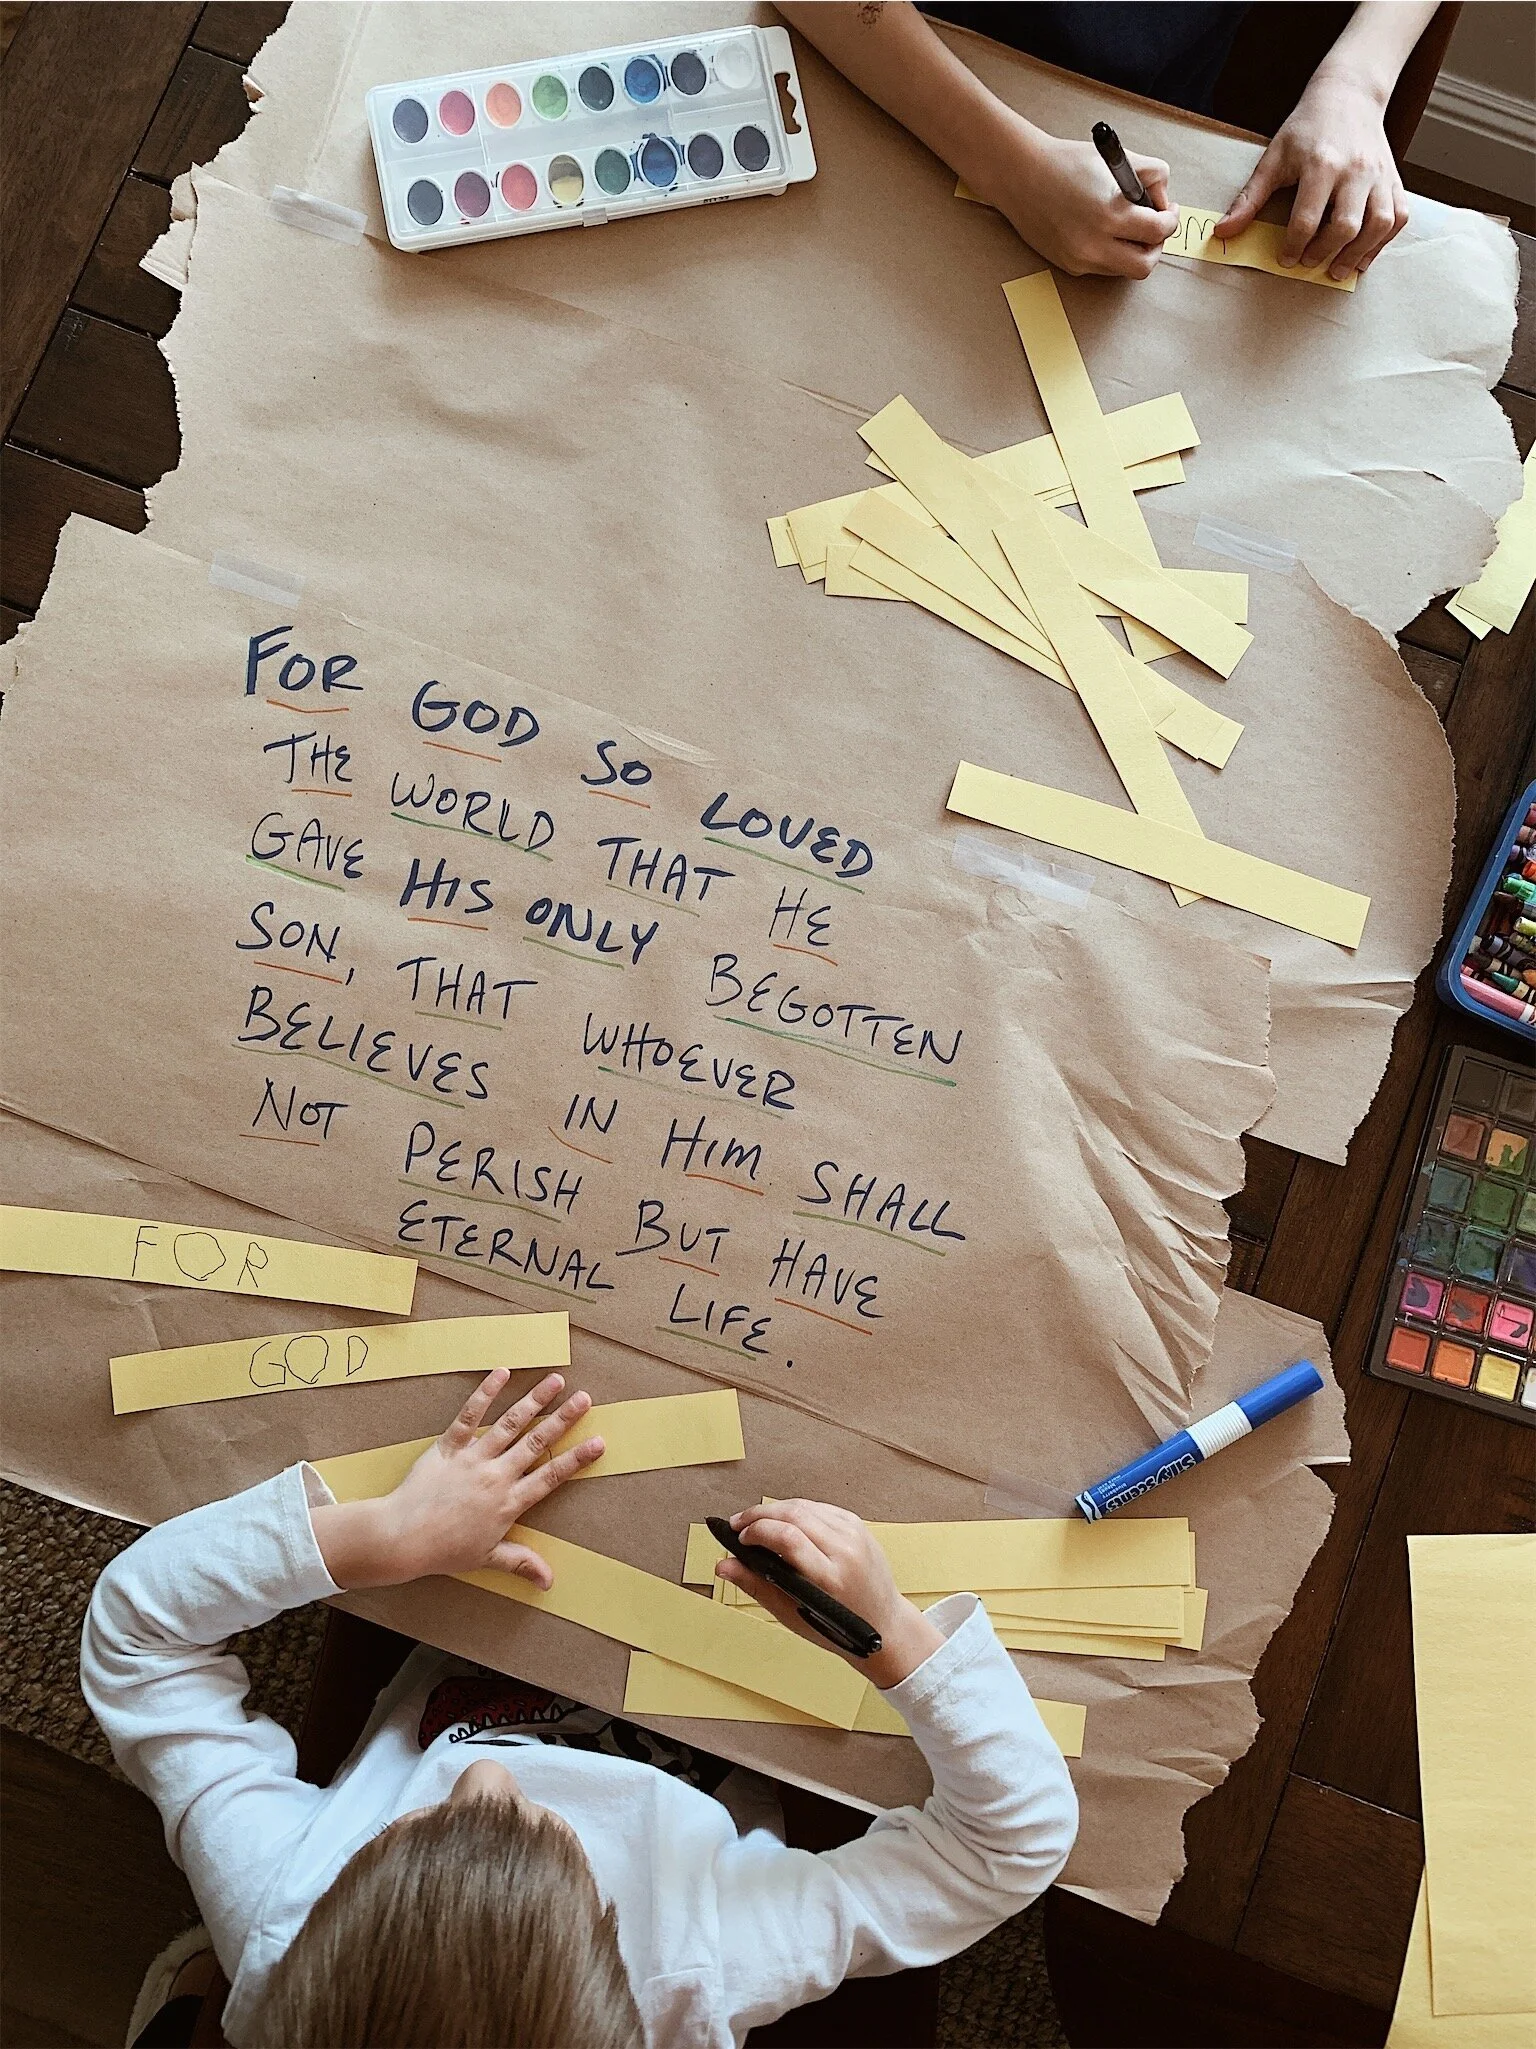 FOR GOD SO LOVED
THE WORLD THAT HE
GAVE HIS ONLY BEGOTTEN
SON, THAT WHOEVER
BELIEVES IN HIM SHALL
NOT PERISH BUT HAVE
ETERNAL LIFE.
FOR
GOD
Silly Scents